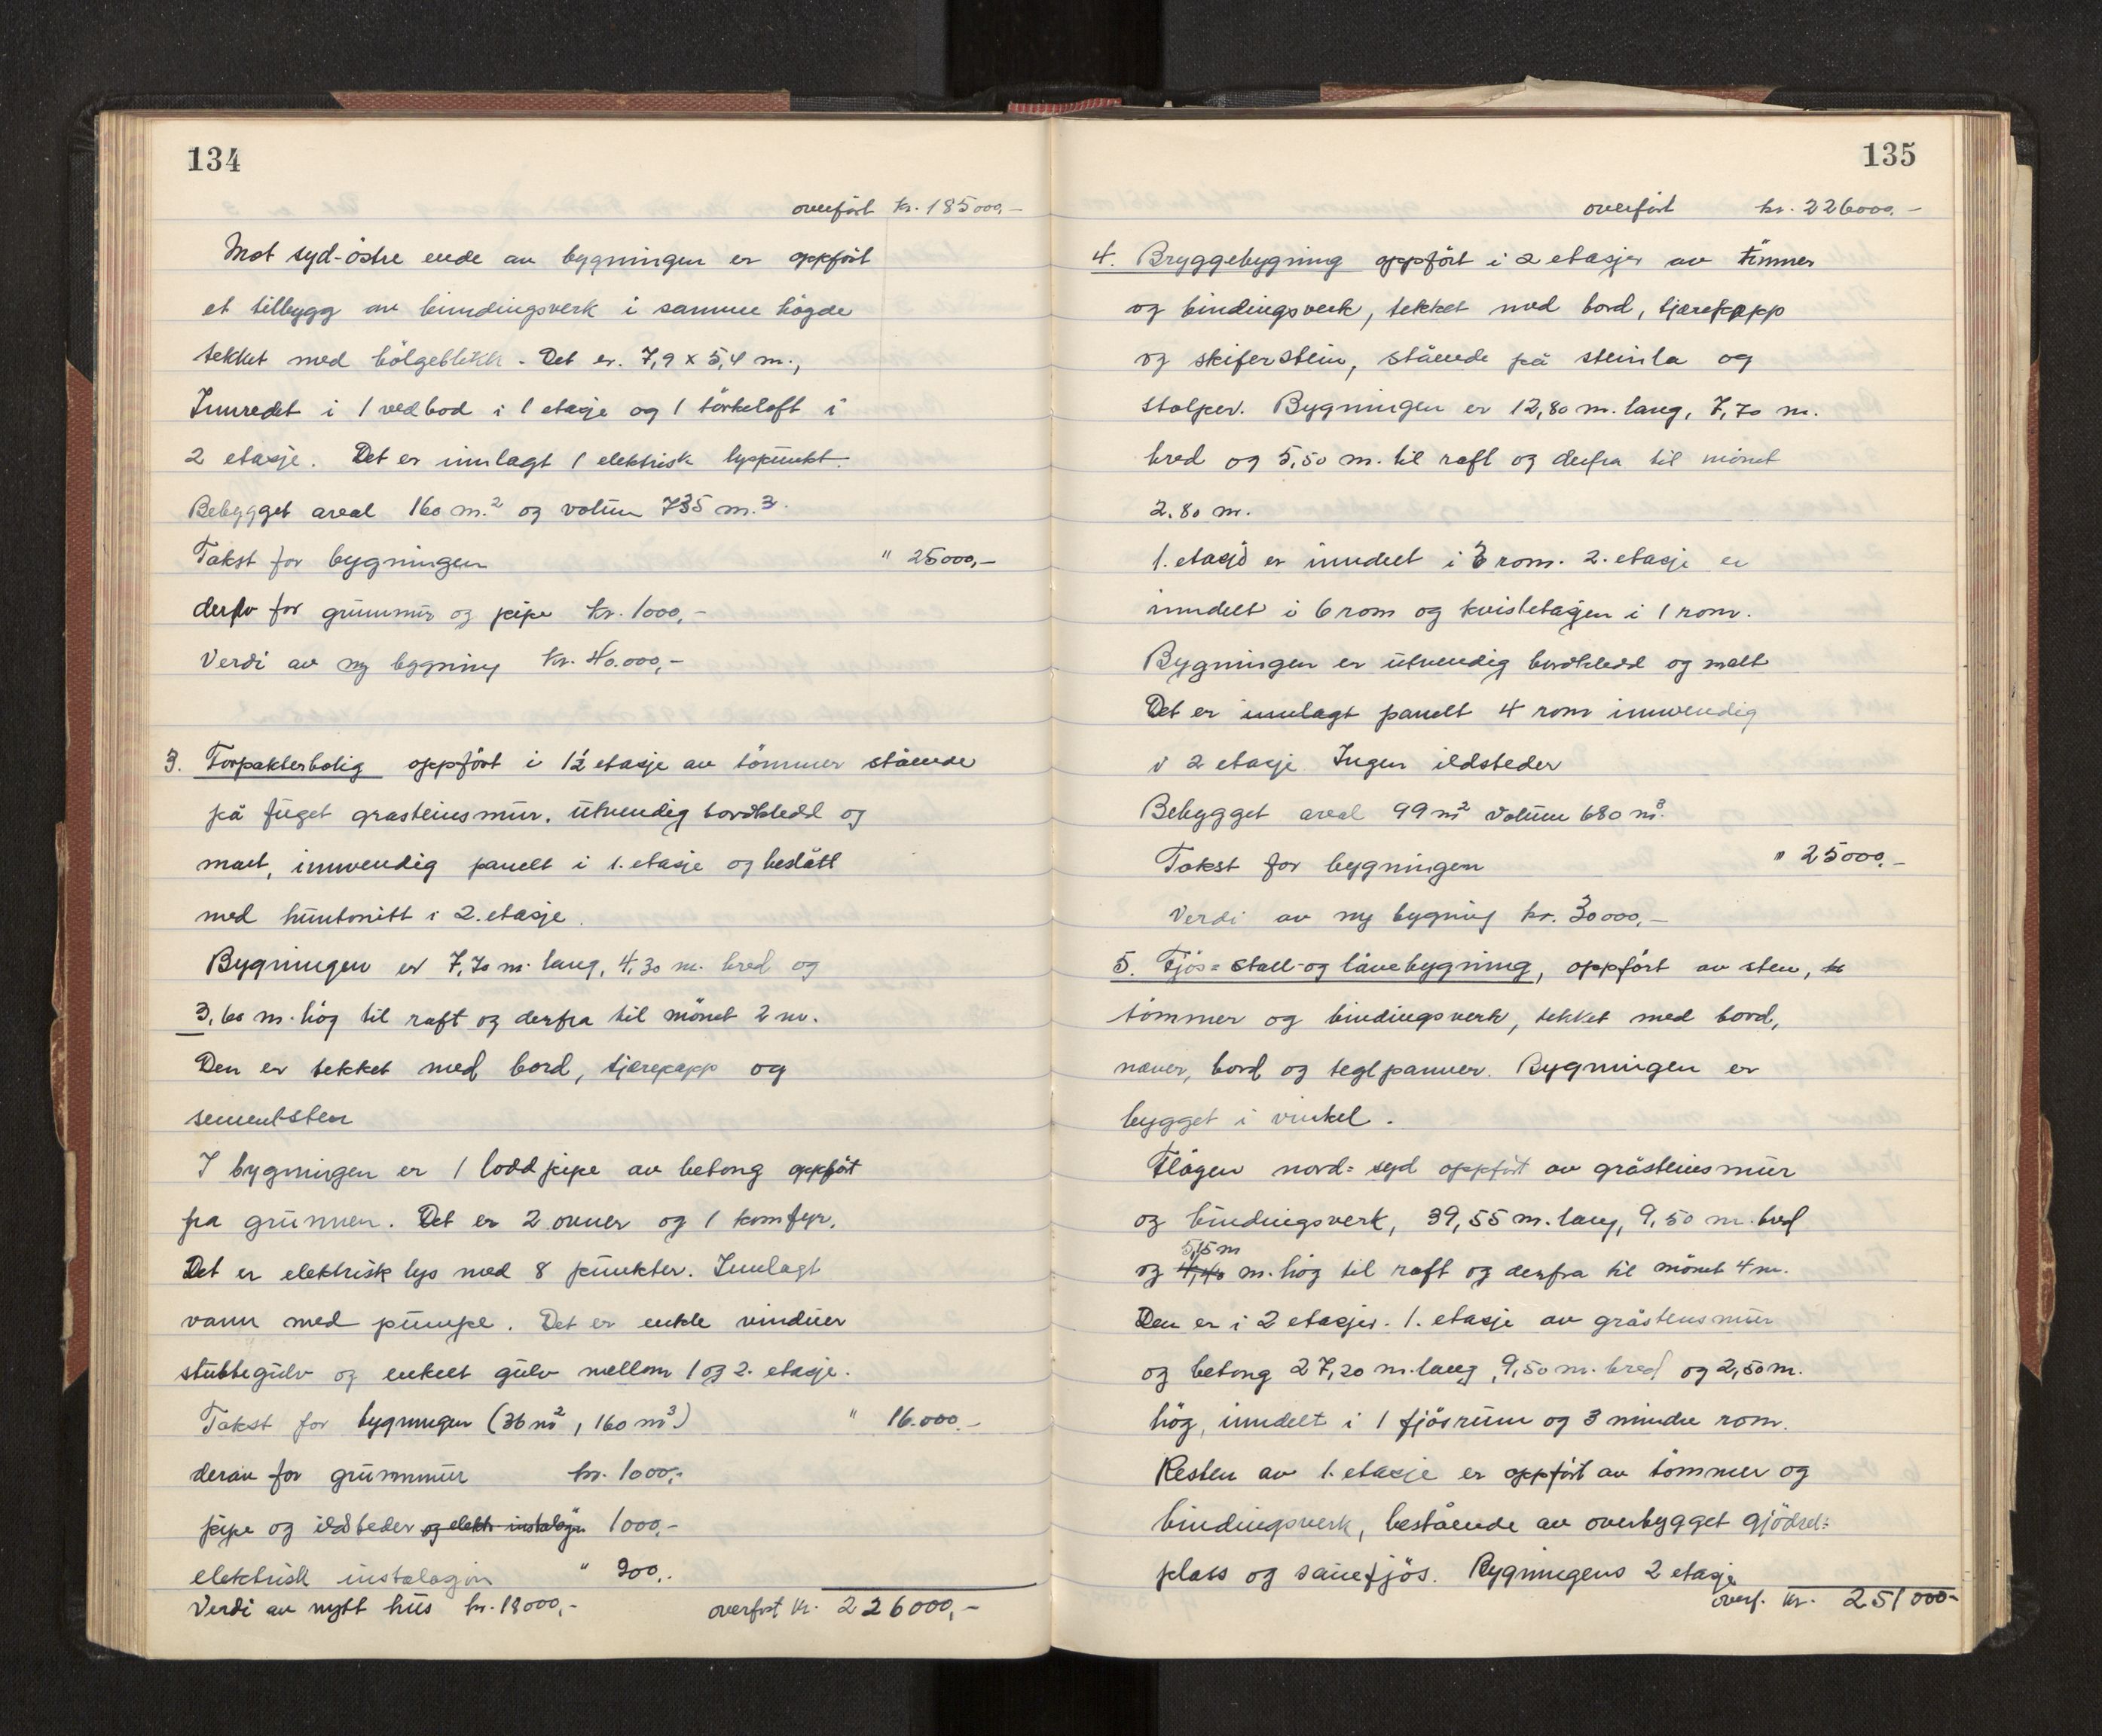 134
overført kr. 185000,-
Mot syd-östre ende av bygningen er oppfört
et tilbygg av bindingsverk i samme högde
tekket med bölgeblekk. Det er. 7,9 x 5,4 m.,
Innredet i 1 vedbod i 1 etasje og 1 törkeloft i
2 etasje. Det er innlagt 1 elektrisk lyspunkt.
Bebygget areal 160 m.² og volum 735 m.³.
Takst for bygningen " 25000,-
derav for grunnmur og pipe kr. 1000,-
Verdi av ny bygning kr. 40.000,-
3. Forpakterbolig oppfört i 1½ etasje av tömmer stående
på fuget grasteinsmur. utvendig bordkledd og
malt, innvendig panelt i 1. etasje og beslått
med huntonitt i 2. etasje.
Bygningen er 7,70 m. lang, 4,30 m. bred og
3,60 m. hög til raft og derfra til mönet 2 m.
Den er tekket med bord, tjærepapp og
sementsten
I bygningen er 1 loddpipe av betong oppfört
fra grunnen. Det er 2 ovner og 1 komfyr.
Det er elektrisk lys med 8 punkter. Innlagt
vann med pumpe. Det er enkle vinduer
stubbegulv og enkelt gulv mellom 1 og 2. etasje.
Takst for bygningen (36 m², 160 m³) " 16.000.-
derav for grunnmur kr. 1000,-
pipe og ildsteder og elektr. instalasjon 1000,-
elektrisk instalasjon " 900,.
Verdi av nytt hus kr. 18000,- overført kr. 226000,-
135
overfört kr. 226000,-
4. Bryggebygning oppfört i 2 etasjer av tömmer
og bindingsverk, tekket med bord, tjærepapp
og skiferstein, stående på steinla og
stolper. Bygningen er 12,80 m. lang, 7,70 m.
bred og 5,50 m. til raft og derfra til mönet
2.80 m.
1. etasje er inndelt i 3 rom. 2. etasje er
inndelt i 6 rom og kvistetasjen i 1 rom.
Bygningen er utvendig bordkledd og malt
Det er innlagt panelt 4 rom innvendig
i 2 etasje. Ingen ildsteder
Bebygget areal 99 m² volum 680 m³.
Takst for bygningen " 25000.-
Verdi av ny bygning kr. 30000,-
5. Fjös= stall- og låvebygning, oppfört av sten, tö
tömmer og bindingsverk, tekket med bord,
never, bord og teglpanner. Bygningen er
bygget i vinkel.
Flögen nord= syd oppfört av gråsteinsmur
og bindingsverk, 39,55 m. lang, 9,50 m. bred
5,15 m
og 4,40 m. hög til raft og derfra til mönet 4 m.
Den er i 2 etasjer. 1. etasje av gråstensmur
og betong 27,20 m. lang, 9,50 m. bred og 2,50 m.
hög, inndelt i 1 fjösrum og 3 mindre rom.
Resten av 1. etasje er oppfört av tömmer og
bindingsverk, bestående av overbygget gjödsel=
plass og sauefjös. Bygningens 2 etasje
overf. kr. 251000-